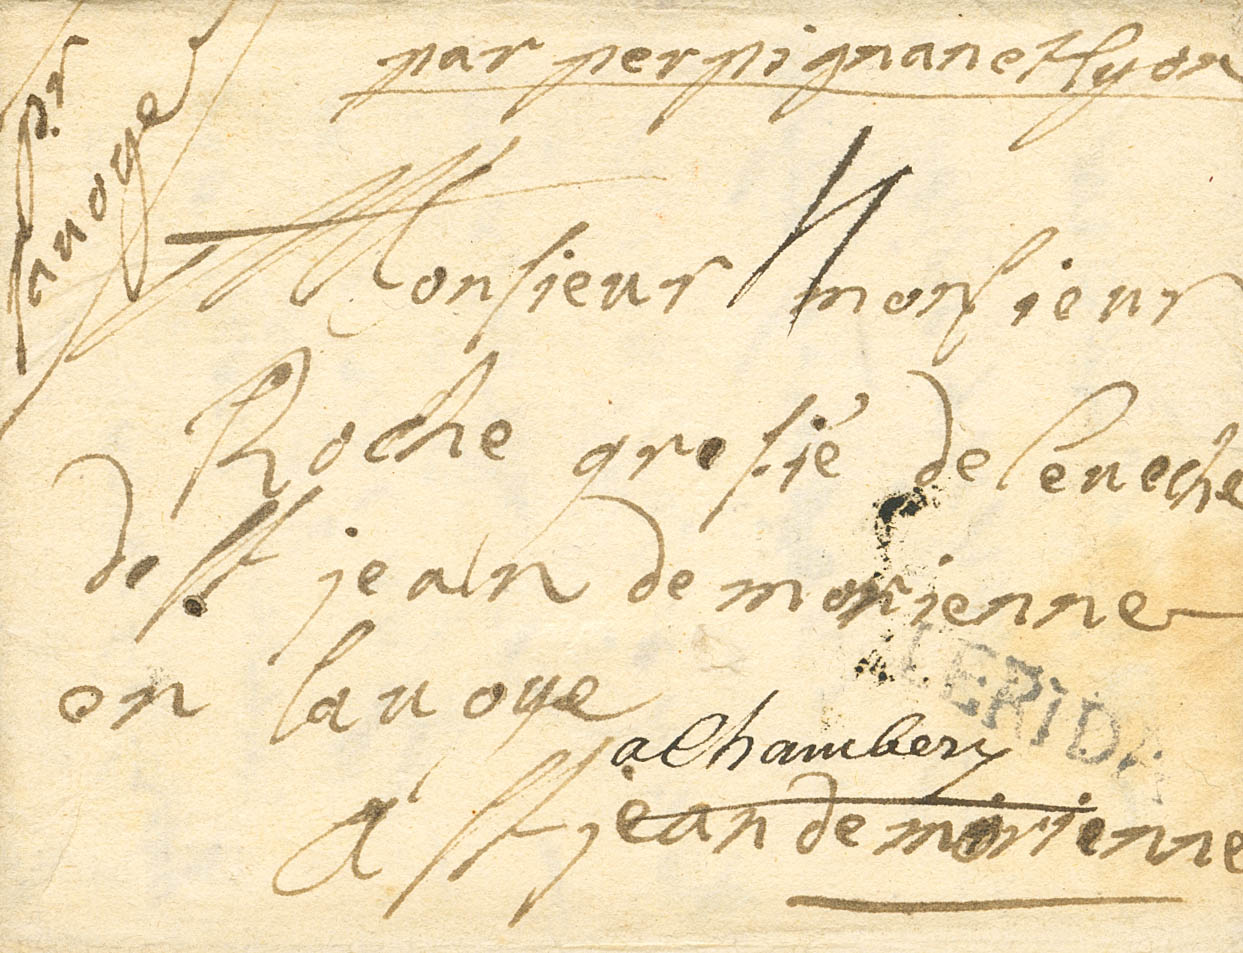 par perpignan et lyon
pr
savoye
Monsieur monsieur
Roche grefié de leveché
de St jean de morienne
en savoye
LERIDA
a Chambery
A St jean de morienne